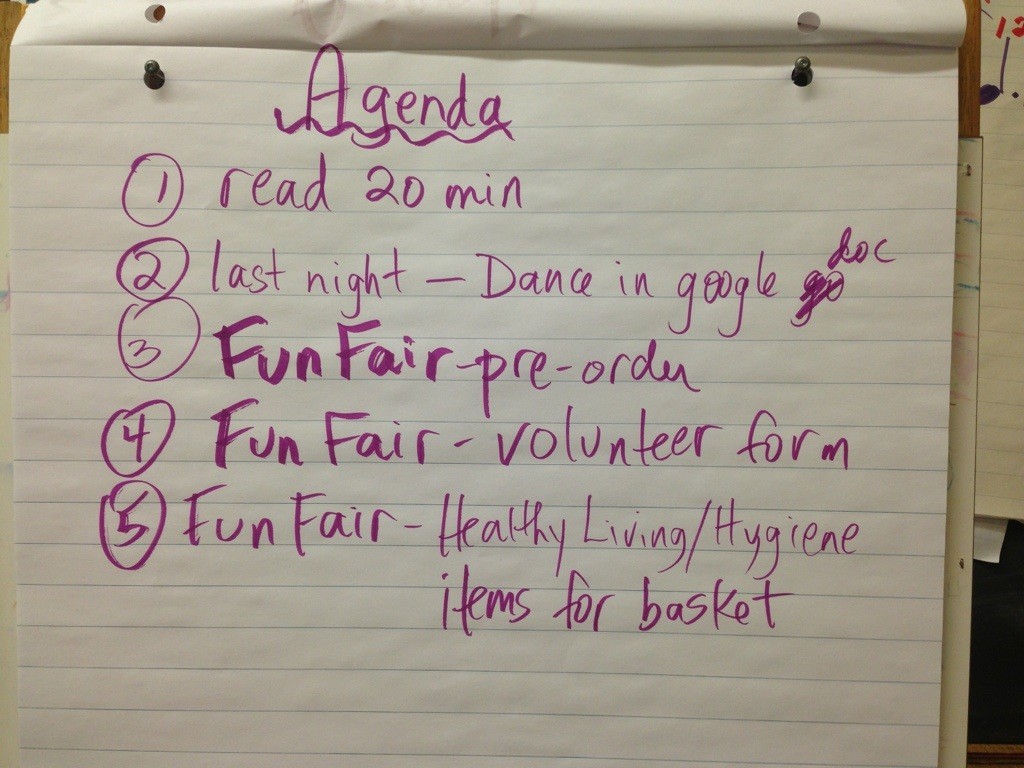 Agenda
1 read 20 min
2 last night - Dance in google doc
3 Fun Fair - pre-order
4 Fun Fair - volunteer form
5 Fun Fair - Healthy Living/Hygiene
items for basket